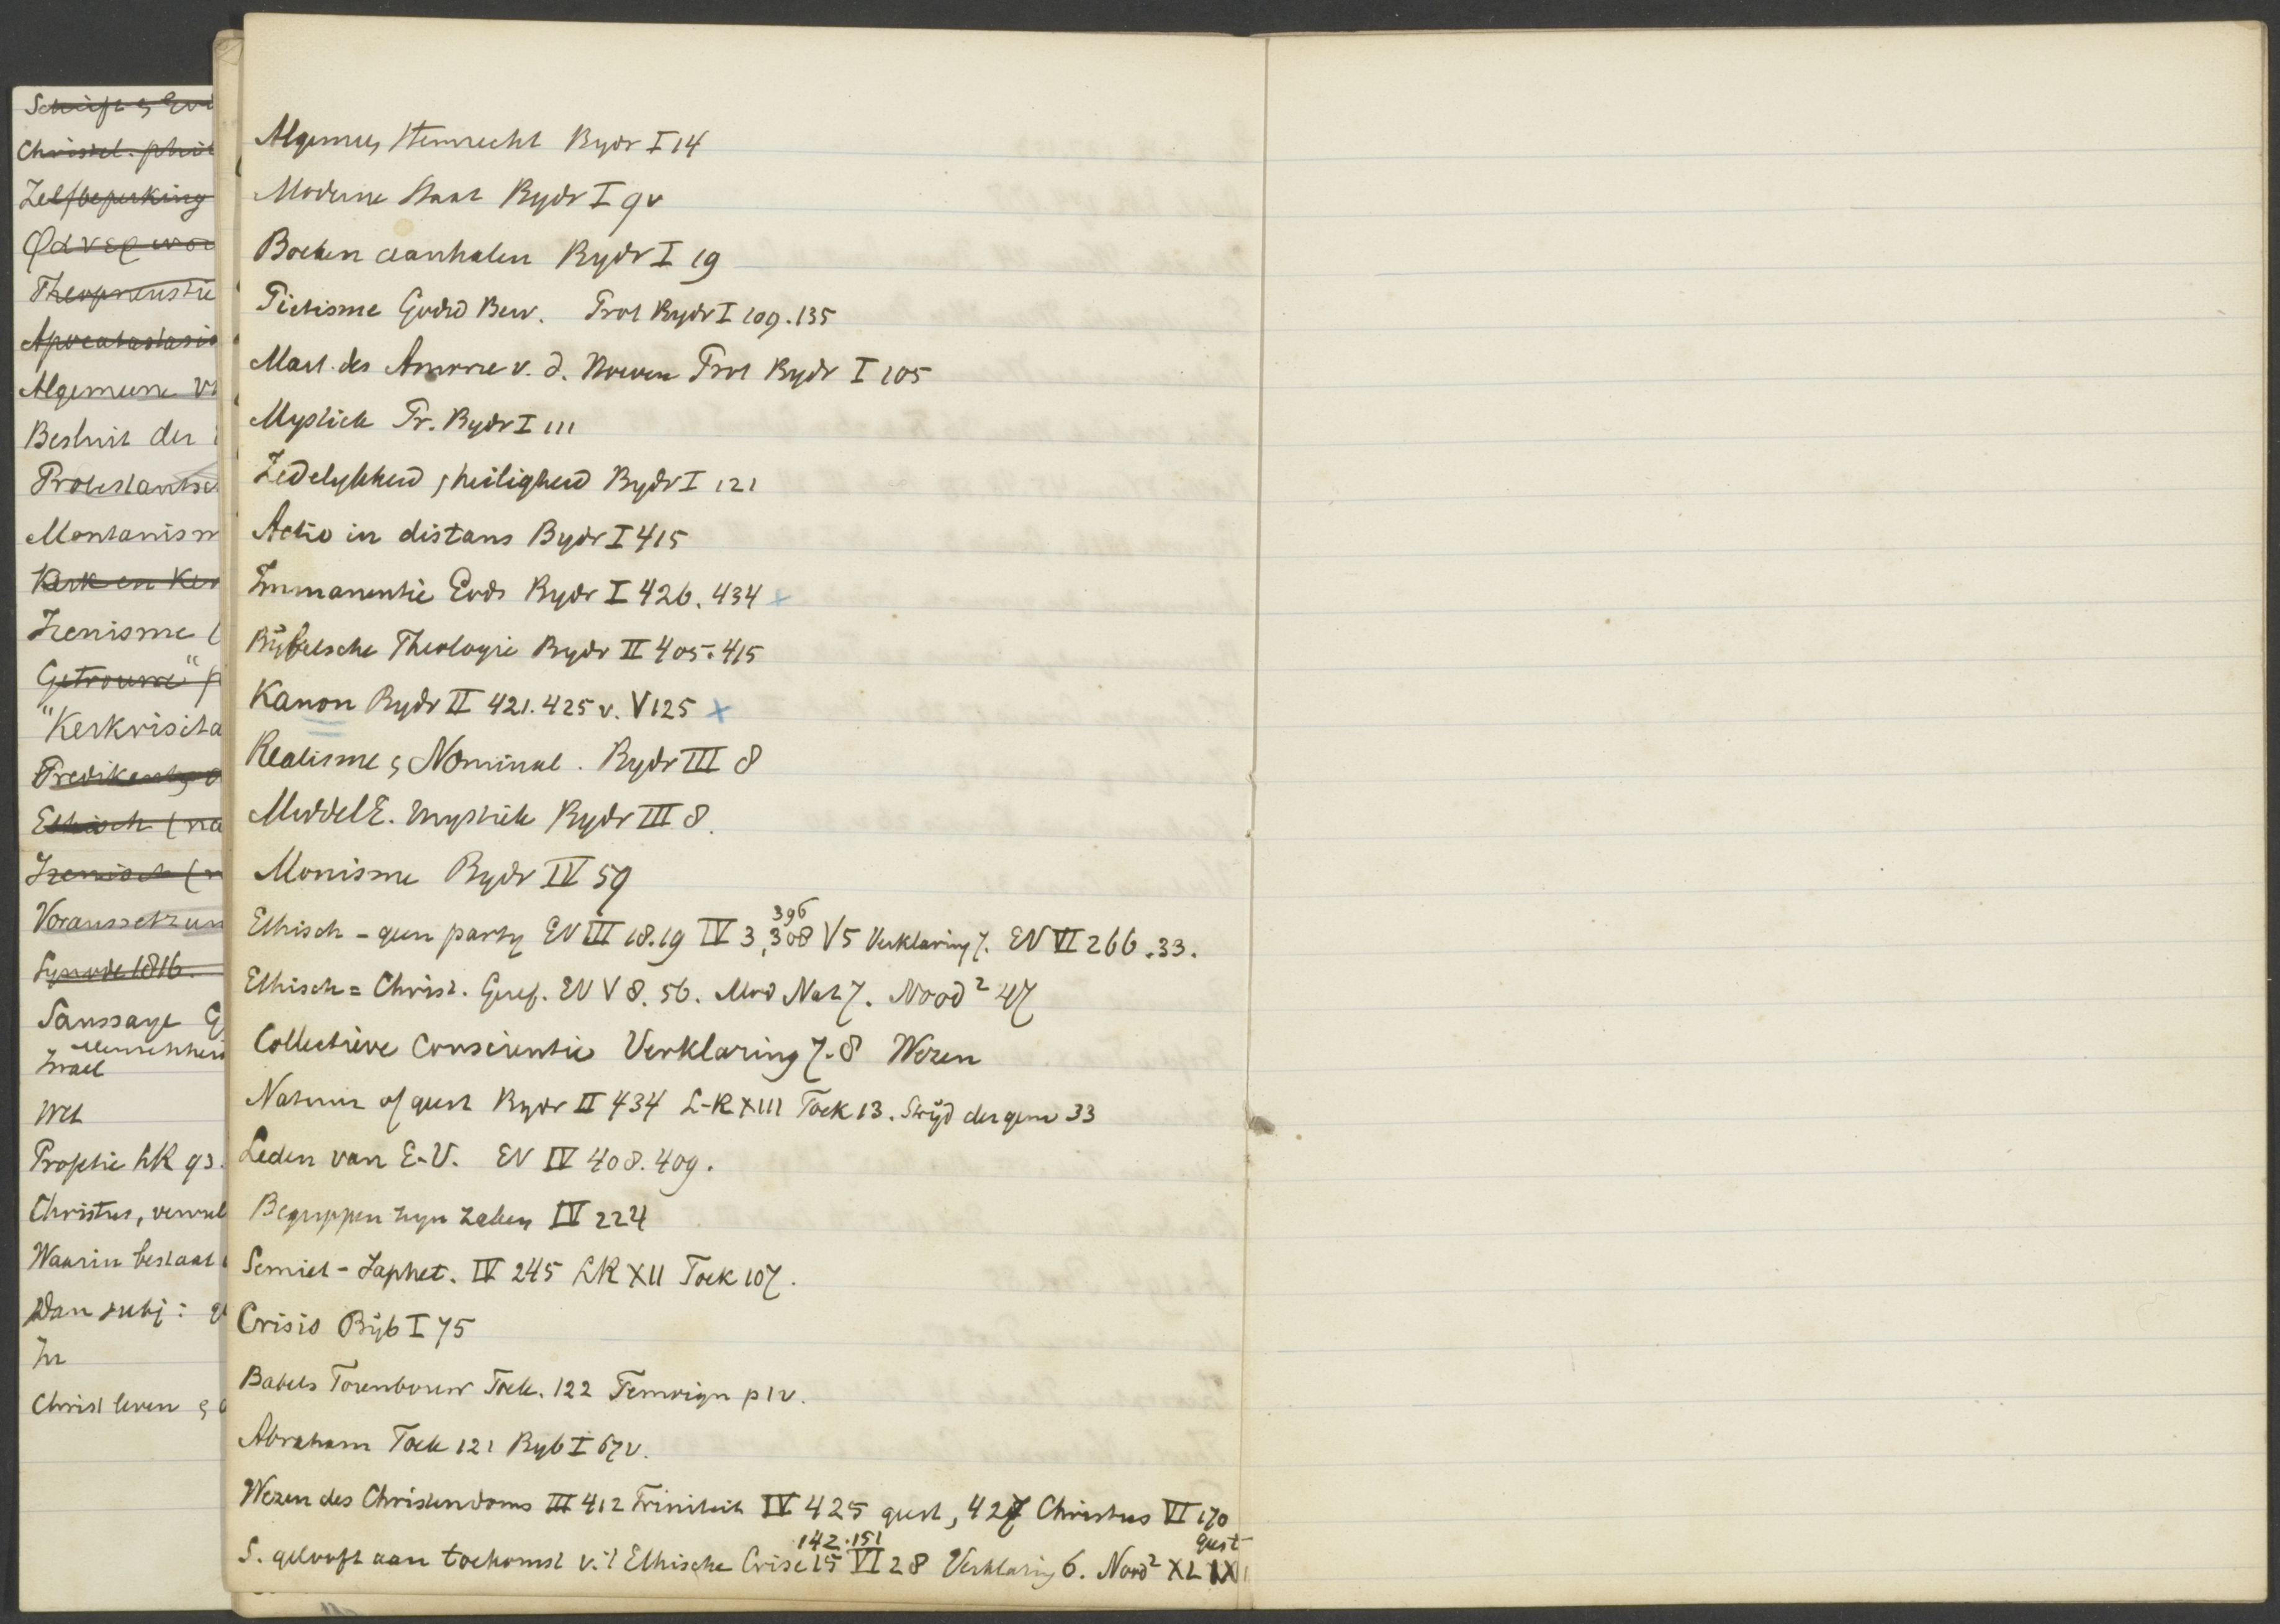 Schrift &
Christel. phil
Zelfbeperking
Theopneustie
Apocatastasis
Algemeene
Besluit der
Protestantsc
Montanism
Kerk en Ker
Irenisme (
Getrouwe"
"Kerkvisita
Predikants
Ethisch (na
Irenisch (
Voraussetzun
Synode 1816.
Saussaye
Menschheid
Israel
Wet
Prophetie LK 93.
Christus, vervul
Waarin bestaat
Dan subj:
In
Christ leven &
Algemeen Stemrecht Bydr I 14
Moderne Staat Bydr I 9v
Boeken aanhalen Bydr I 19
Piëtisme Godsd Bew. Prot Bydr I 109.135
Mart. des Amorie v. d. Hoeven Prot Bydr I 105
Mystiek Pr. Bydr I 111
Zedelykheid, heiligheid Bydr I 121
Actio in distans Bydr I 415
Immanentie Gods Bydr I 426. 434 x
Bijbelsche Theologie Bydr II 405. 415
Kanon Bydr II 421. 425 v. V 125 x
Realisme & Nominal. Bydr III 8
MiddelE. mystiek Bydr III 8.
Monisme Bydr IV 59
Ethisch - geen party EV III 18.19 IV 3, 396 308 V 5 Verklaring 7. EV VI 266.33.
Ethisch = Christ. Geref. EV V 8. 56. Mod Nat 7. Nood² 47
Collectieve conscientie Verklaring 7-8 Wezen
Natuur of geest Bydr II 434 L-R XIII Toek 13. Strijd der gem 33
Leden van E-V. EV IV 408. 409.
Begrippen zyn zaken IV 224
Semiet - Japhet. IV 245 LR XII Toek 107.
Crisis Bijb I 75
Babels Torenbouw Toek. 122 p 1v.
Abraham Toek 121 Byb I 67v.
Wezen des Christendoms III 412 Triniteit IV 425 geest, 427 Christus VI 170
geest
S. gelooft aan toekomst v. 't Ethische Crise 15 142.151 VI 28 Verklaring 6. Nood² XL